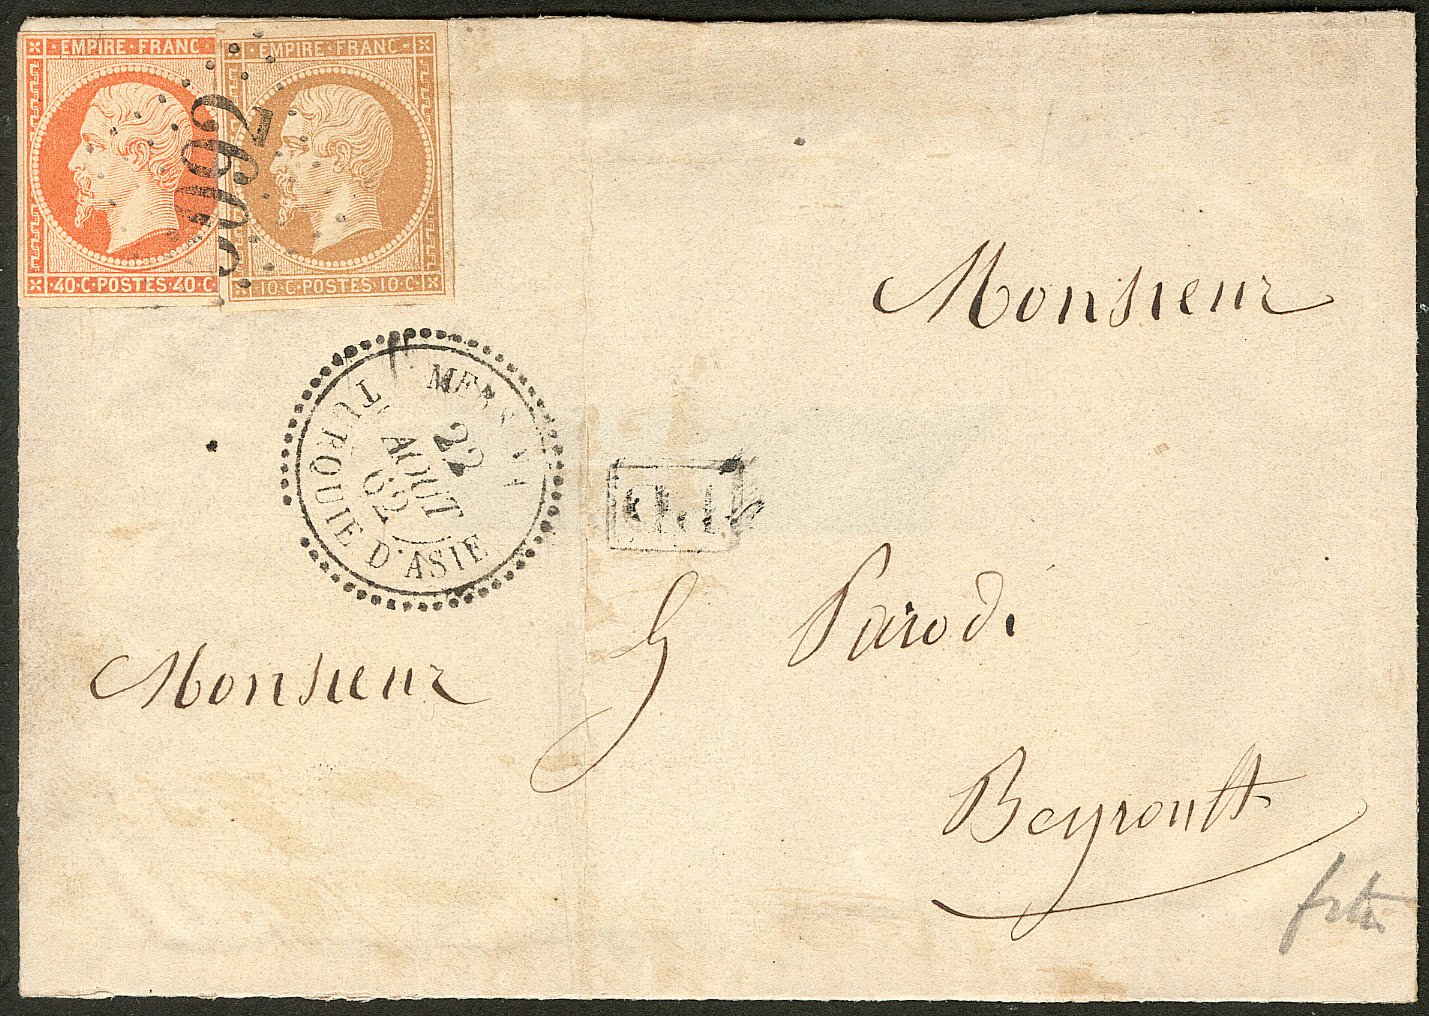 EMPIRE FRANC
40·C·POSTES·40·C
EMPIRE·FRANC
10·C·POSTES·10·C
5092
TURQUIE D'ASIE
22
AOUT
62
P.D.
Monsieur
Monsieur
G Parodi
Beyrouth